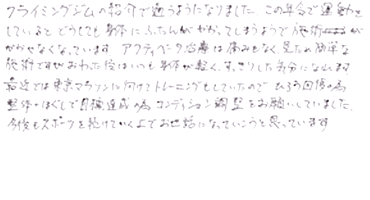 クライミングジムの紹介で通うようになりました この年令で運動を
しているとどうしても身体にふたんがかかってしまうようで施術
がかかせなくなっています アクティベータ治療は痛みもなく見ため簡単な
施術ですがおわった後はいつも身体が軽く、すっきりした気分になります
最近では東京マラソンに向けてトレーニングもしていたので ひろう回復の為
整体+ほぐしで目標達成の為コンディション調整をお願いしていました
今後もスポーツを続けていく上でお世話になっていこうと思っています